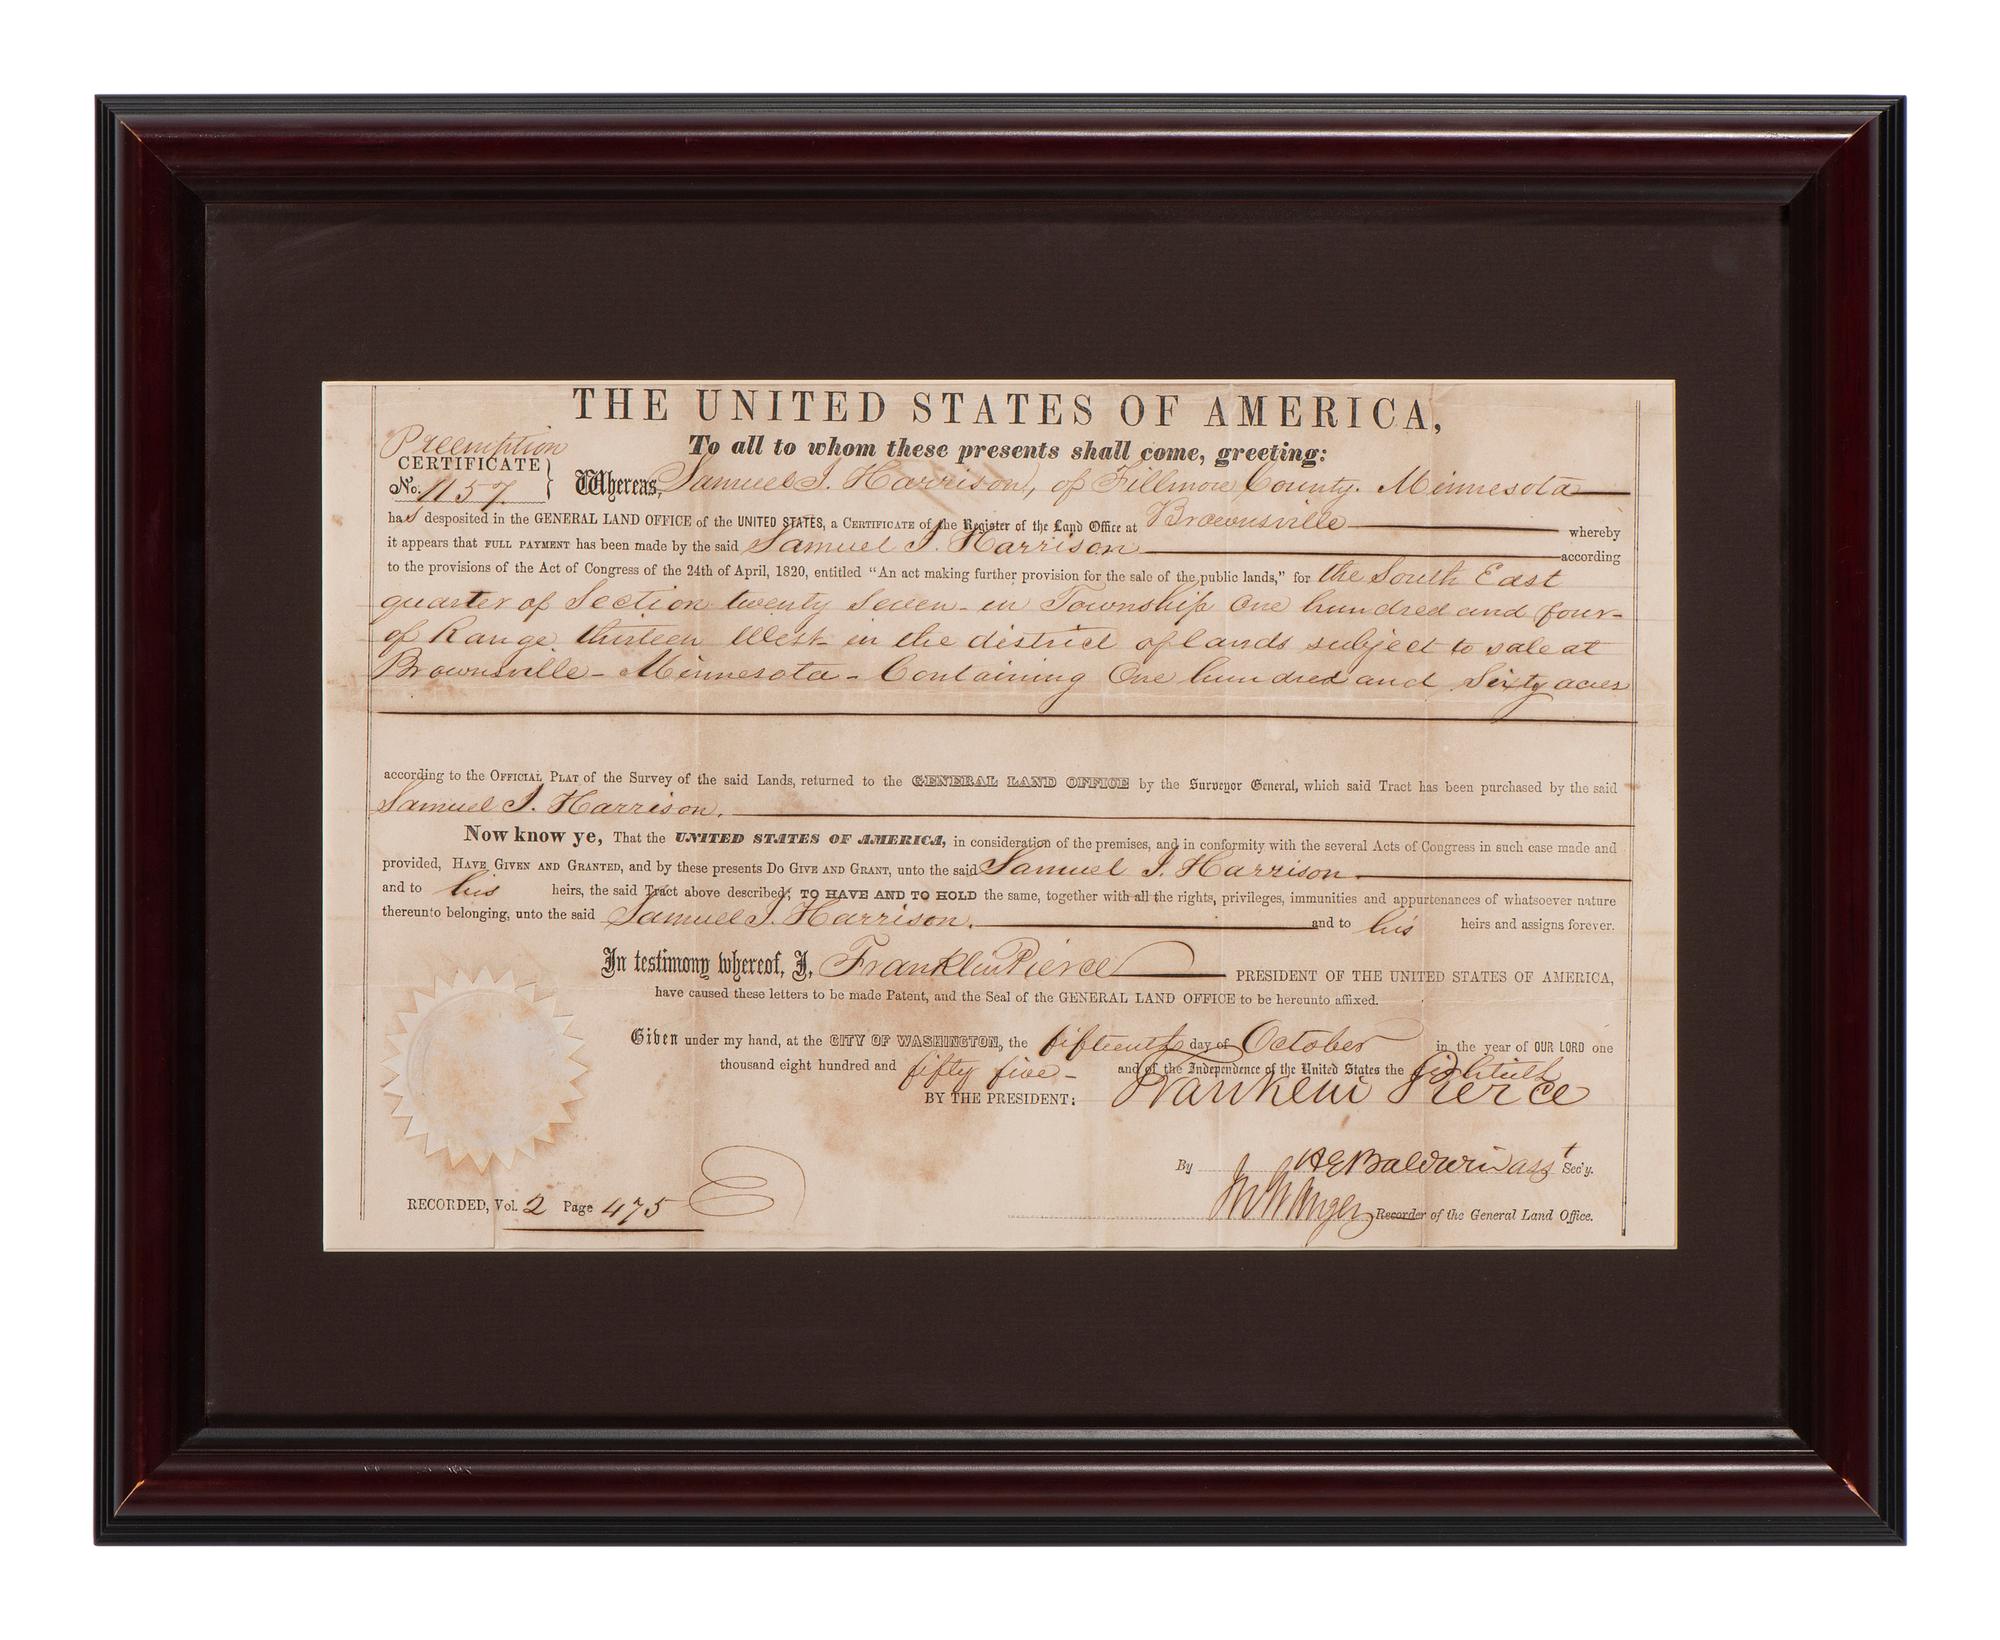 THE UNITED STATES OF AMERICA,
To all to whom these presents shall come, greeting:
Preemption
CERTIFICATE
No. 1157
Whereas, Samuel J. Harrison, of Fillmore County. Minnesota
has desposited in the GENERAL LAND OFFICE of the UNITED STATES, a CERTIFICATE of the Register of the Land Office at Brownsville whereby
it appears that FULL PAYMENT has been made by the said Samuel J. Harrison according
to the provisions of the Act of Congress of the 24th of April, 1820, entitled "An act making further provision for the sale of the public lands," for the South East
quarter of Section twenty Seven - in Township One hundred and four -
of Range thirteen West in the district of lands subject to sale at
Brownsville - Minnesota - Containing One hundred and Sixty acres
according to the OFFICIAL PLAT of the Survey of the said Lands, returned to the GENERAL LAND OFFICE by the Surveyor General, which said Tract has been purchased by the said
Samuel J. Harrison.
Now know ye, That the UNITED STATES OF AMERICA, in consideration of the premises, and in conformity with the several Acts of Congress in such case made and
provided, HAVE GIVEN AND GRANTED, and by these presents DO GIVE AND GRANT, unto the said Samuel J. Harrison
and to his heirs, the said Tract above described; TO HAVE AND TO HOLD the same, together with all the rights, privileges, immunities and appurtenances of whatsoever nature
thereunto belonging, unto the said Samuel J. Harrison. and to his heirs and assigns forever.
In testimony whereof, I, Franklin Pierce PRESIDENT OF THE UNITED STATES OF AMERICA,
have caused these letters to be made Patent, and the Seal of the GENERAL LAND OFFICE to be hereunto affixed.
Given under my hand, at the CITY OF WASHINGTON, the fifteenth day of October in the year of OUR LORD one
thousand eight hundred and fifty five - and of the Independence of the United States the Eightieth
BY THE PRESIDENT: Franklin Pierce
By H E Baldwin asst Sec'y.
RECORDED, Vol. 2 Page 475
Recorder of the General Land Office.